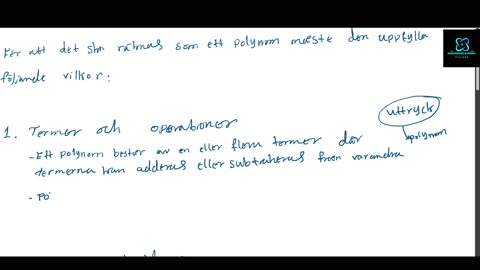 För att det ska räknas som ett polynom måste den uppfylla
följande villkor:
uttryck
polynom
1. Termer och operationer
- Ett polynom består av en eller flera termer där
termerna kan adderas eller subtraheras från varandra
- po